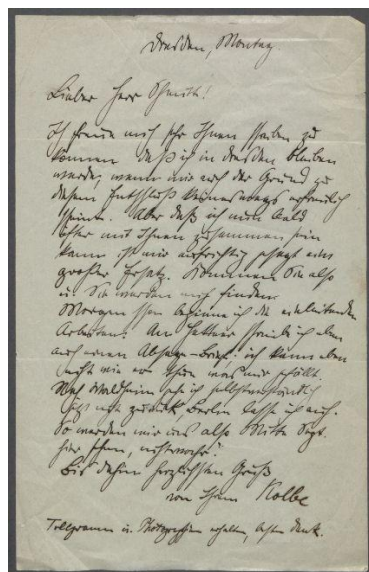 Dresden, Montag
Lieber Herr Schmidt!
Ich freue mich sehr Ihnen schreiben zu
können daß ich in Dresden bleiben
werde, wenn mir auch der Grund zu
diesem Entschluß keineswegs erfreulich
scheint. Aber daß ich nun bald
öfter mit Ihnen zusammen sein
kann ist mir aufrichtig gesagt ein
großer Ersatz. Kommen Sie also
u. Sie werden mich finden.
Morgen schon beginne ich die einleitenden
Arbeiten. An Hettner schreibe ich eben
auch einen Absage-Brief: ich kann eben
nicht wie er
Nach Waldheim gehe ich selbstverständlich
jetzt nicht zurück, Berlin lasse ich auch.
So werden wir uns also Mitte Sept.
hier sehen, nichtwahr?
Bis dahin herzlichsten Gruß
von Ihrem Kolbe
Telegramm u. Photographien erhalten, besten Dank.